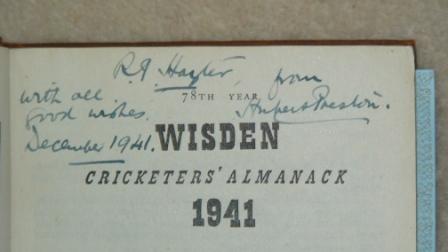 R.J. Hayter, from
with all 78TH YEAR Hubert Preston.
good wishes.
December 1941. WISDEN
CRICKETERS' ALMANACK
1941